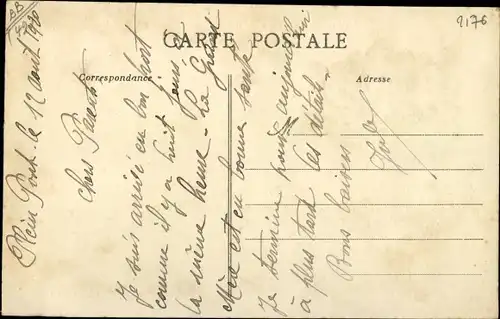 CARTE POSTALE
Correspondance
Adresse
2176
le 12 août 1920
Chers Parents
Je suis arrivé en bon port
comme il y a huit jours à
la même heure - La Grand
Mère est en bonne santé
Je termine pour aujourd'hui
à plus tard les détails -
Bons baisers